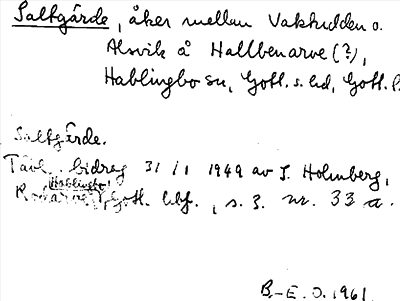 Saltgärde, åker mellan Vaktudden o.
Alsvik å Hallbenarve (?),
Hablingbo sn, Gotl. s. hd, Gotl. l
Saltgärde.
Tävl. bidrag 31/1 1949 av J. Holmberg,
Hablingbo
Gotl. lbf., s. 3. nr. 33 a.
B-E. O. 1961.